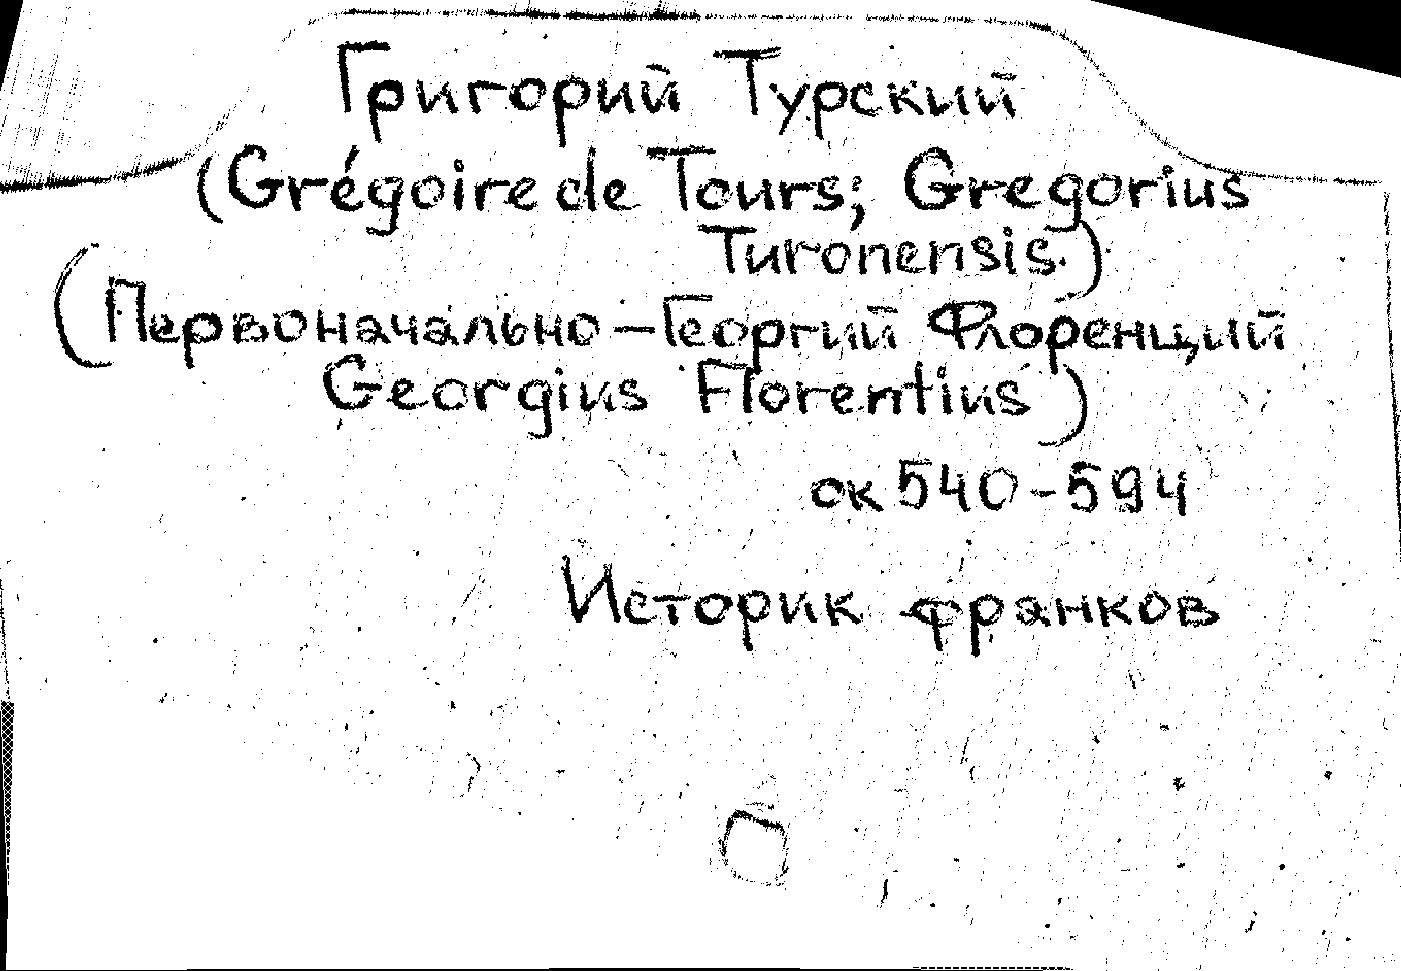 Григорий Турский
(Grégoire de Tours; Gregorius
Turonensis.)
(Первоначально – Георгий Флоренций
Georgius Florentius)
ок 540-594
Историк франков